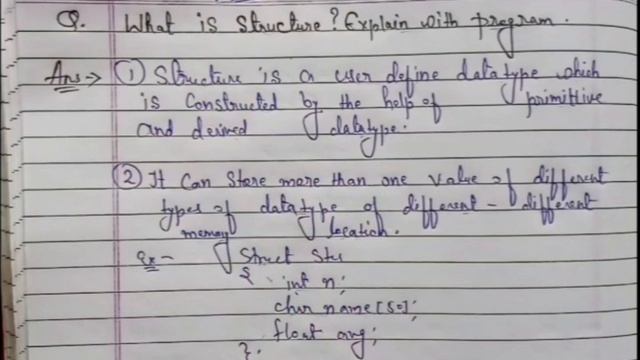 Q. What is structure? Explain with program.
Ans:→ ① Structure is a user define datatype which
is constructed by the help of primittive
and derived datatype.
② It can store more than one value of different
types of datatype of different - different
memory location.
Ex - Struct Stu
{ int n;
char name[50];
float avg;
}.